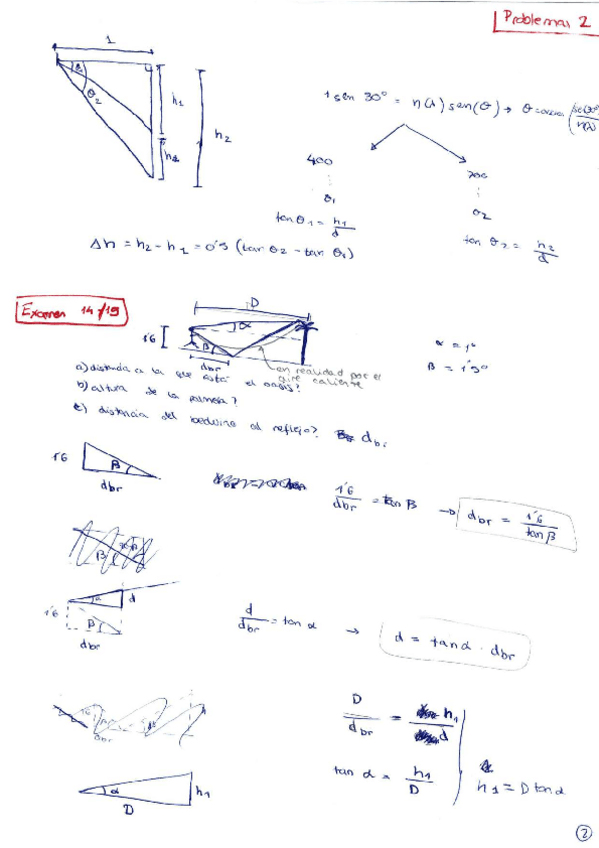 Problemas 2
1
θ1
θ2
h1
h2
1 sen 30° = η(λ) sen(θ) → θ = arcsen (sen(30°)/η(λ))
400
700
θ1
θ2
tan θ1 = h1/d
tan θ2 = h2/d
Δh = h2 - h1 = 0'5 (tan θ2 - tan θ1)
Examen 14/15
D
α
1'6
β
dbr
en realidad por el
aire caliente
α = 1°
β = 1'5°
a) distancia a la que está el oasis?
b) altura de la palmera?
c) distancia del beduino al reflejo?
1'6
β
dbr
1'6/dbr = tan β → dbr = 1'6/tan β
α
d
1'6
β
dbr
d/dbr = tan α → d = tan α · dbr
D/dbr = h1/d
tan α = h1/D
h1 = D tan α
α
h1
D
2